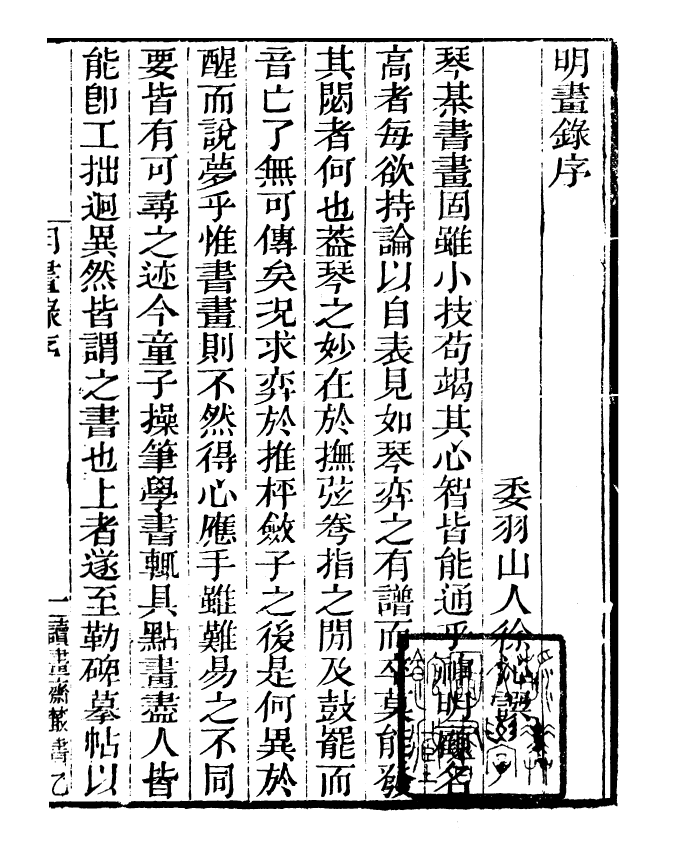 明畫錄序
委羽山人徐沁譔
琴棊書畫固雖小技苟竭其心智皆能通乎神明顧名
高者每欲持論以自表見如琴弈之有譜而卒莫能發
其閟者何也葢琴之妙在於撫弦捲指之閒及鼓罷而
音亡了無可傳矣况求弈於推枰斂子之後是何異於
醒而說夢乎惟書畫則不然得心應手雖難易之不同
要皆有可尋之迹今童子操筆學書輒具點畫盡人皆
能卽工拙迥異然皆謂之書也上者遂至勒碑摹帖以
明畫錄序
一
讀畫齋叢書乙